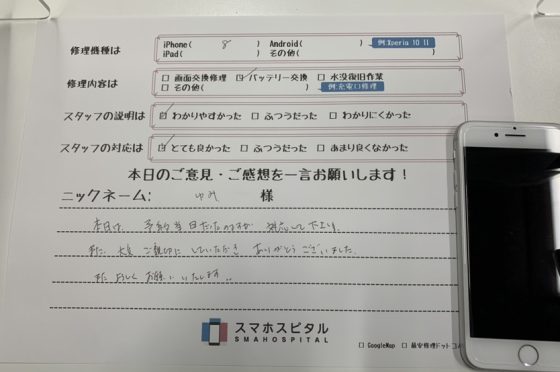 修理機種は
iPhone( 8 ) Android( ) 例:Xperia 10 II
iPad( ) その他( )
修理内容は
□ 画面交換修理 ☑ バッテリー交換 □ 水没復旧作業
□ その他( ) 例:充電口修理
スタッフの説明は ☑ わかりやすかった □ ふつうだった □ わかりにくかった
スタッフの対応は ☑ とても良かった □ ふつうだった □ あまり良くなかった
本日のご意見・ご感想を一言お願いします!
ニックネーム: 様
本日は、予約当日だったのですが 対応して下さり、
また、大変 ご親切に していただき ありがとう ございました。
また よろしく お願い いたします。
スマホスピタル
SMAHOSPITAL
□ GoogleMap □ 最安修理ドットコム